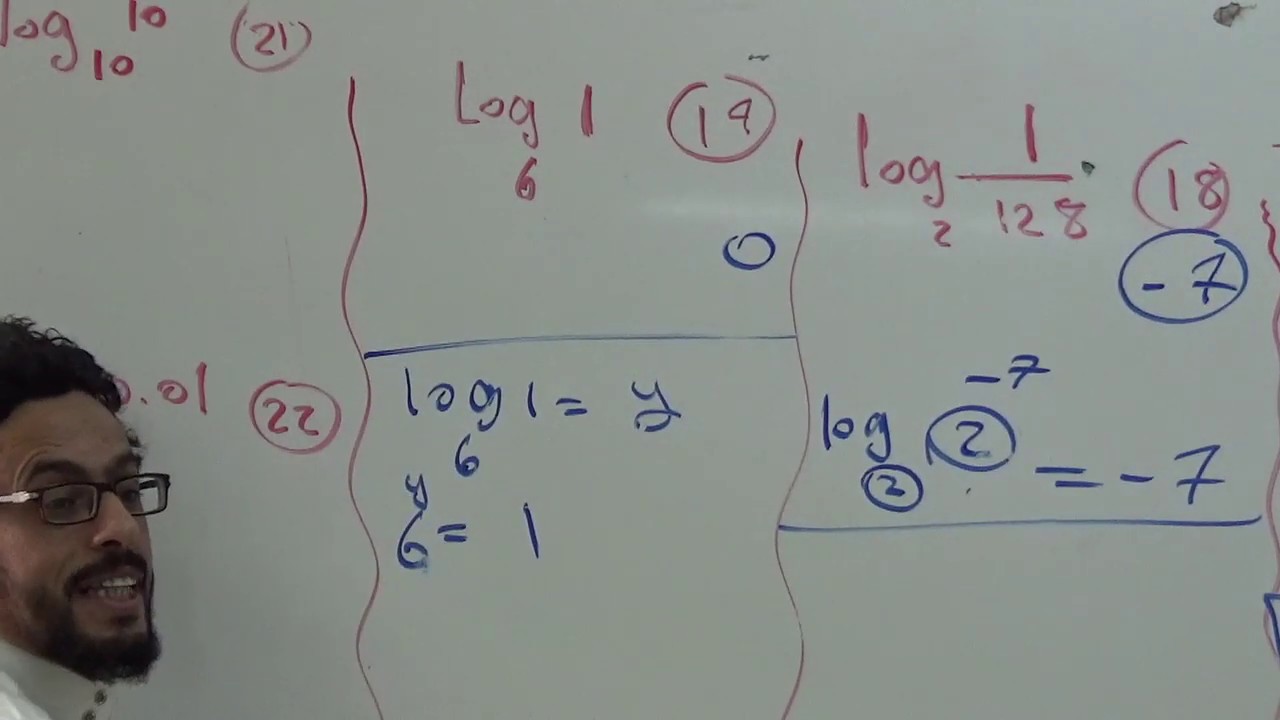 log₁₀ 10 (21)
log₆ 1 (19)
0
log₆ 1 = y
6^y = 1
log₂ 1/128 (18)
-7
log₂ 2^-7 = -7
0.01 (22)